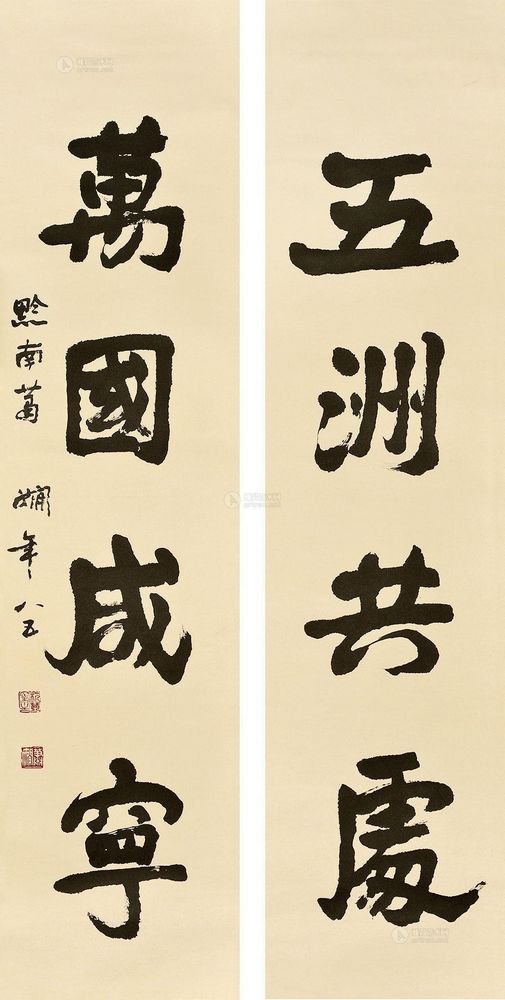 五洲共處
萬國咸寧
黔南蕭嫻年八五